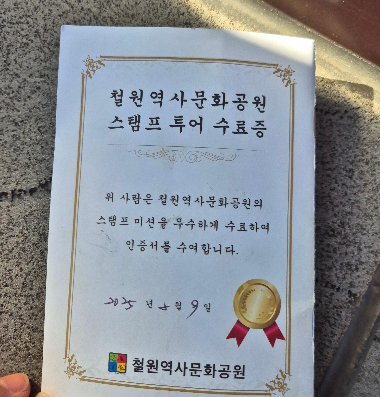 철원역사문화공원
스탬프 투어 수료증
위 사람은 철원역사문화공원의
스탬프 미션을 우수하게 수료하여
인증서를 수여합니다.
2025 년 월 9 일
철원역사문화공원